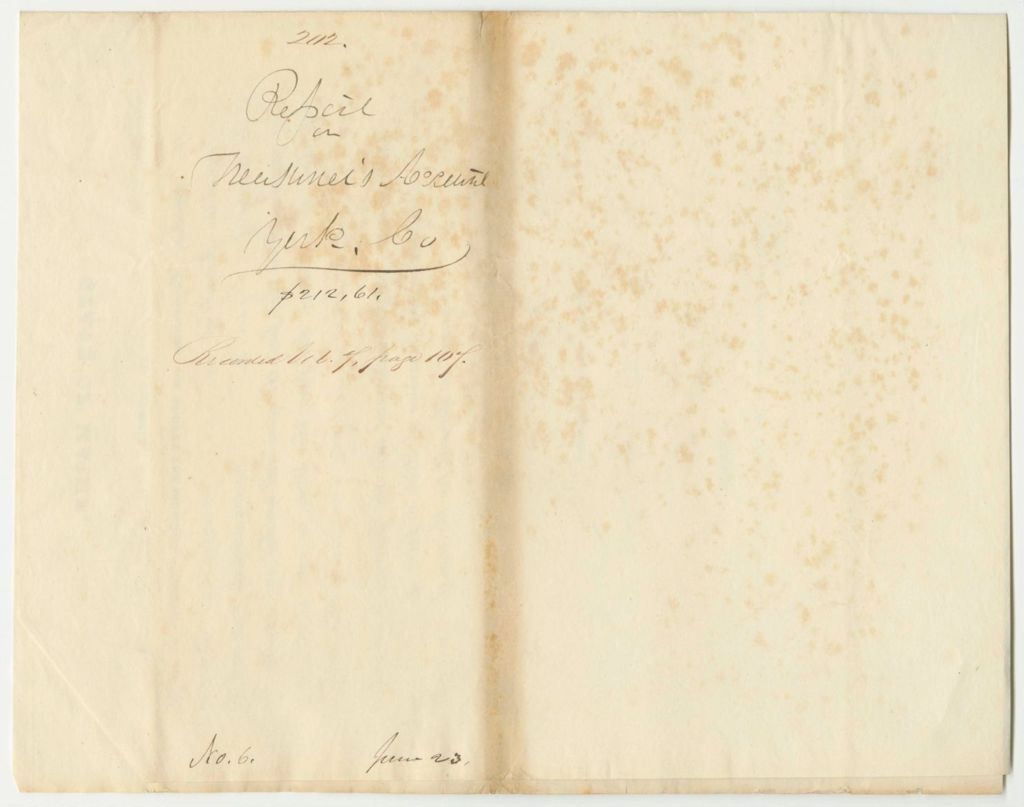 202.
Report
on
Treasurer's Account
York. Co
$212,61.
Recorded Vol. 7, page 107.
No. 6. June 23.